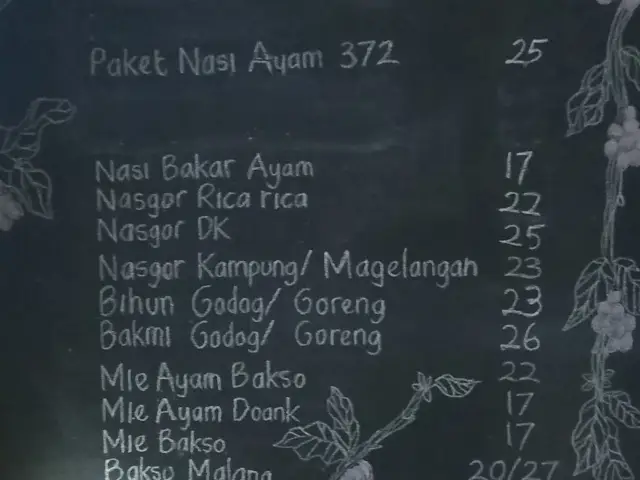 Paket Nasi Ayam 372 25
Nasi Bakar Ayam 17
Nasgor Rica rica 22
Nasgor DK 25
Nasgor Kampung/ Magelangan 23
Bihun Godog/ Goreng 23
Bakmi Godog/ Goreng 26
Mie Ayam Bakso 22
Mie Ayam Doank 17
Mie Bakso 17
Bakso Malang 20/27